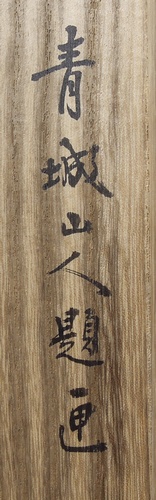 青城山人題匣